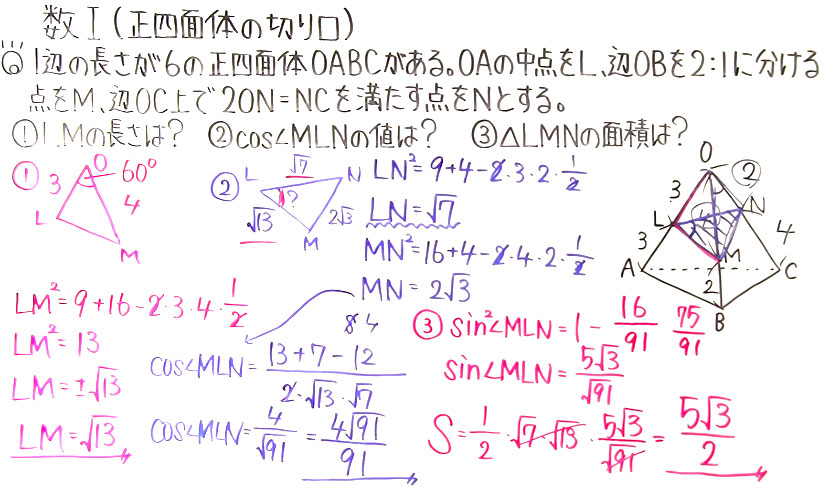 数Ⅰ(正四面体の切り口)
1辺の長さが6の正四面体OABCがある。OAの中点をL、辺OBを2:1に分ける
点をM、辺OC上で2ON=NCを満たす点をNとする。
①LMの長さは? ②cos∠MLNの値は? ③△LMNの面積は?
①
O
60°
3
4
L
M
LM²=9+16-2·3·4·1/2
LM²=13
LM=±√13
LM=√13
②
L
√7
N
?
√13
2√3
M
LN²=9+4-2·3·2·1/2
LN=√7
MN²=16+4-2·4·2·1/2
MN=2√3
8 4
cos∠MLN=(13+7-12)/(2·√13·√7)
cos∠MLN=4/√91=4√91/91
O
②
3
N
L
4
4
3
M
A
C
2
B
③sin²∠MLN=1-16/91 75/91
sin∠MLN=5√3/√91
S=1/2·√7·√13·5√3/√91=5√3/2